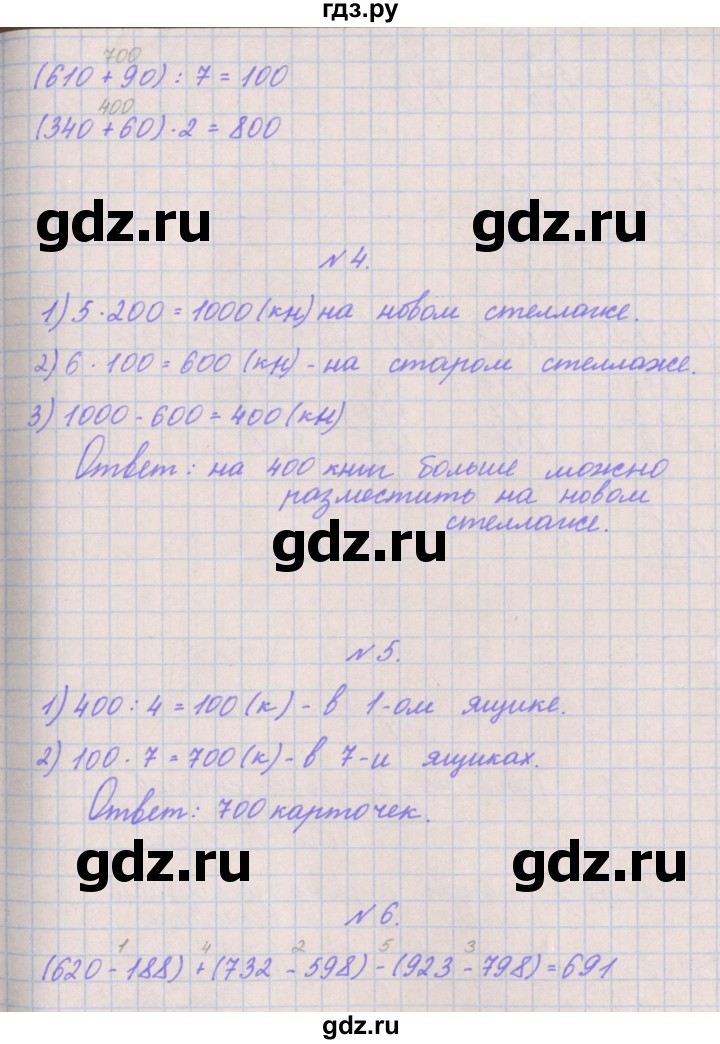 гдз.ру
700
(610 + 90) : 7 = 100
400
(340 + 60) · 2 = 800
gdz.ru gdz.ru
№ 4.
1) 5 · 200 = 1000 (кн) на новом стеллаже.
2) 6 · 100 = 600 (кн) - на старом стеллаже.
3) 1000 - 600 = 400 (кн)
Ответ: на 400 книг больше можно
разместить на новом
стеллаже.
gdz.ru
№ 5.
1) 400 : 4 = 100 (к) - в 1-ом ящике.
2) 100 · 7 = 700 (к) - в 7-и ящиках.
Ответ: 700 карточек.
gdz.ru gdz.ru
№ 6.
1 4 2 5 3
(620 - 188) + (732 - 598) - (923 - 798) = 691
gdz.ru